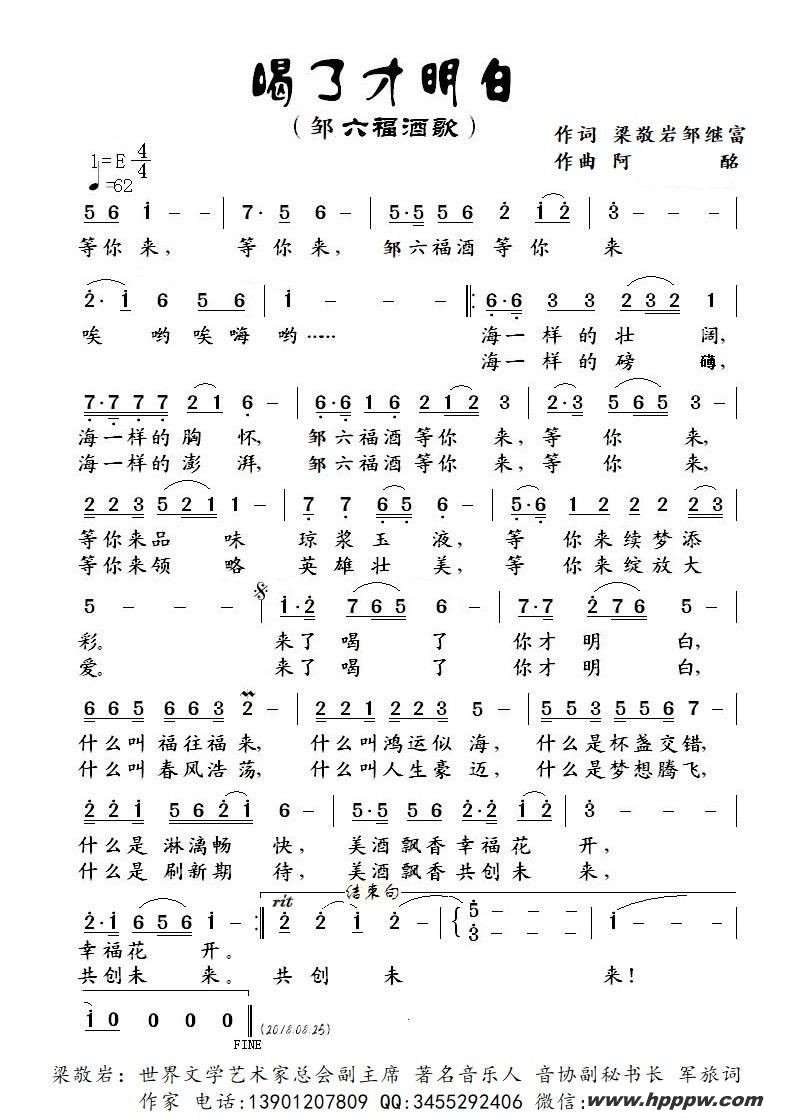 喝了才明白
（邹六福酒歌）
作词 梁敬岩邹继富
作曲 阿 酩
1=E 4/4
♩=62
5 6 i - - | 7· 5 6 - | 5·5 5 6 2 i 2 | 3 - - |
等你来， 等你来， 邹六福酒等你 来
2· i 6 5 6 | i - - - ‖: 6·6 3 3 2 3 2 1 |
唉 哟唉嗨哟…… 海一样的壮 阔，
海一样的磅 礴，
7·7 7 7 2 1 6 - | 6·6 1 6 2 1 2 3 | 2·3 5 6 5 5 |
海一样的胸 怀， 邹六福酒等你 来，等 你 来，
海一样的澎 湃， 邹六福酒等你 来，等 你 来，
2 2 3 5 2 1 1 - | 7 7 6 5 6 - | 5·6 1 2 2 2 3 |
等你来品 味 琼浆玉 液， 等 你来续梦添
等你来领 略 英雄壮 美， 等 你来绽放大
5 - - - | i·2 7 6 5 6 - | 7·7 2 7 6 5 - |
彩。 来了喝 了 你才明 白，
爱。 来了喝 了 你才明 白，
6 6 5 6 6 3 2 - | 2 2 1 2 2 3 5 - | 5 5 3 5 5 6 7 - |
什么叫 福往福来， 什么叫鸿运似 海， 什么是杯盏交错，
什么叫 春风浩荡， 什么叫人生豪 迈， 什么是梦想腾飞，
2 2 i 5 6 2 i 6 - | 5·5 5 6 2·2 i 2 | 3 - - |
什么是 淋漓畅 快， 美酒飘香幸福花 开，
什么是 刷新期 待， 美酒飘香共创未 来，
结束句
rit
2·i 6 5 6 i - :‖ 2 2 i i 2 - | { 5 - - - 3 - - - | i - - - |
幸福花 开。
共创未 来。 共 创 未 来！
i 0 0 0 0 ‖ (2018.08.25)
FINE
梁敬岩：世界文学艺术家总会副主席 著名音乐人 音协副秘书长 军旅词
作家 电话:13901207809 QQ:3455292406 微信:
www.hpppw.com